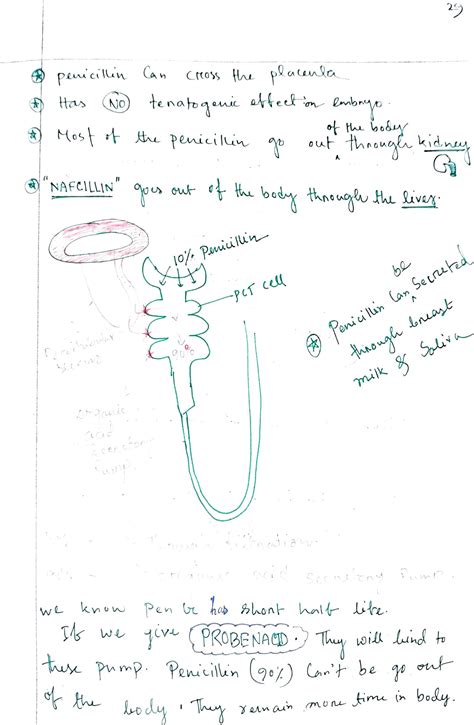 29
penicillin Can cross the placenta
Has NO teratogenic effect on embryo.
Most of the penicillin go out of the body through kidney
"NAFCILLIN" goes out of the body through the liver.
10% Penicillin
PCT cell
Penicillin Can be Secreted
through breast
milk & Saliva
organic
acid
we know Pen G has short half life.
If we give PROBENACID. They will bind to
these pump. Penicillin (90%) Can't be go out
of the body, They remain more time in body.